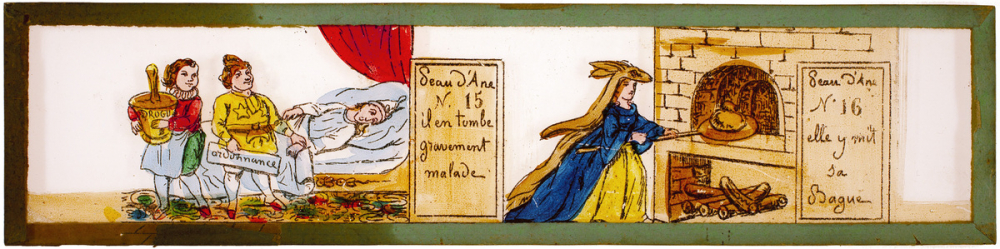 DROGUE
ordonnance
Peau d'Ane
N. 15
il en tombe
gravement
malade
Peau d'Ane
N. 16
elle y mit
sa
Bague